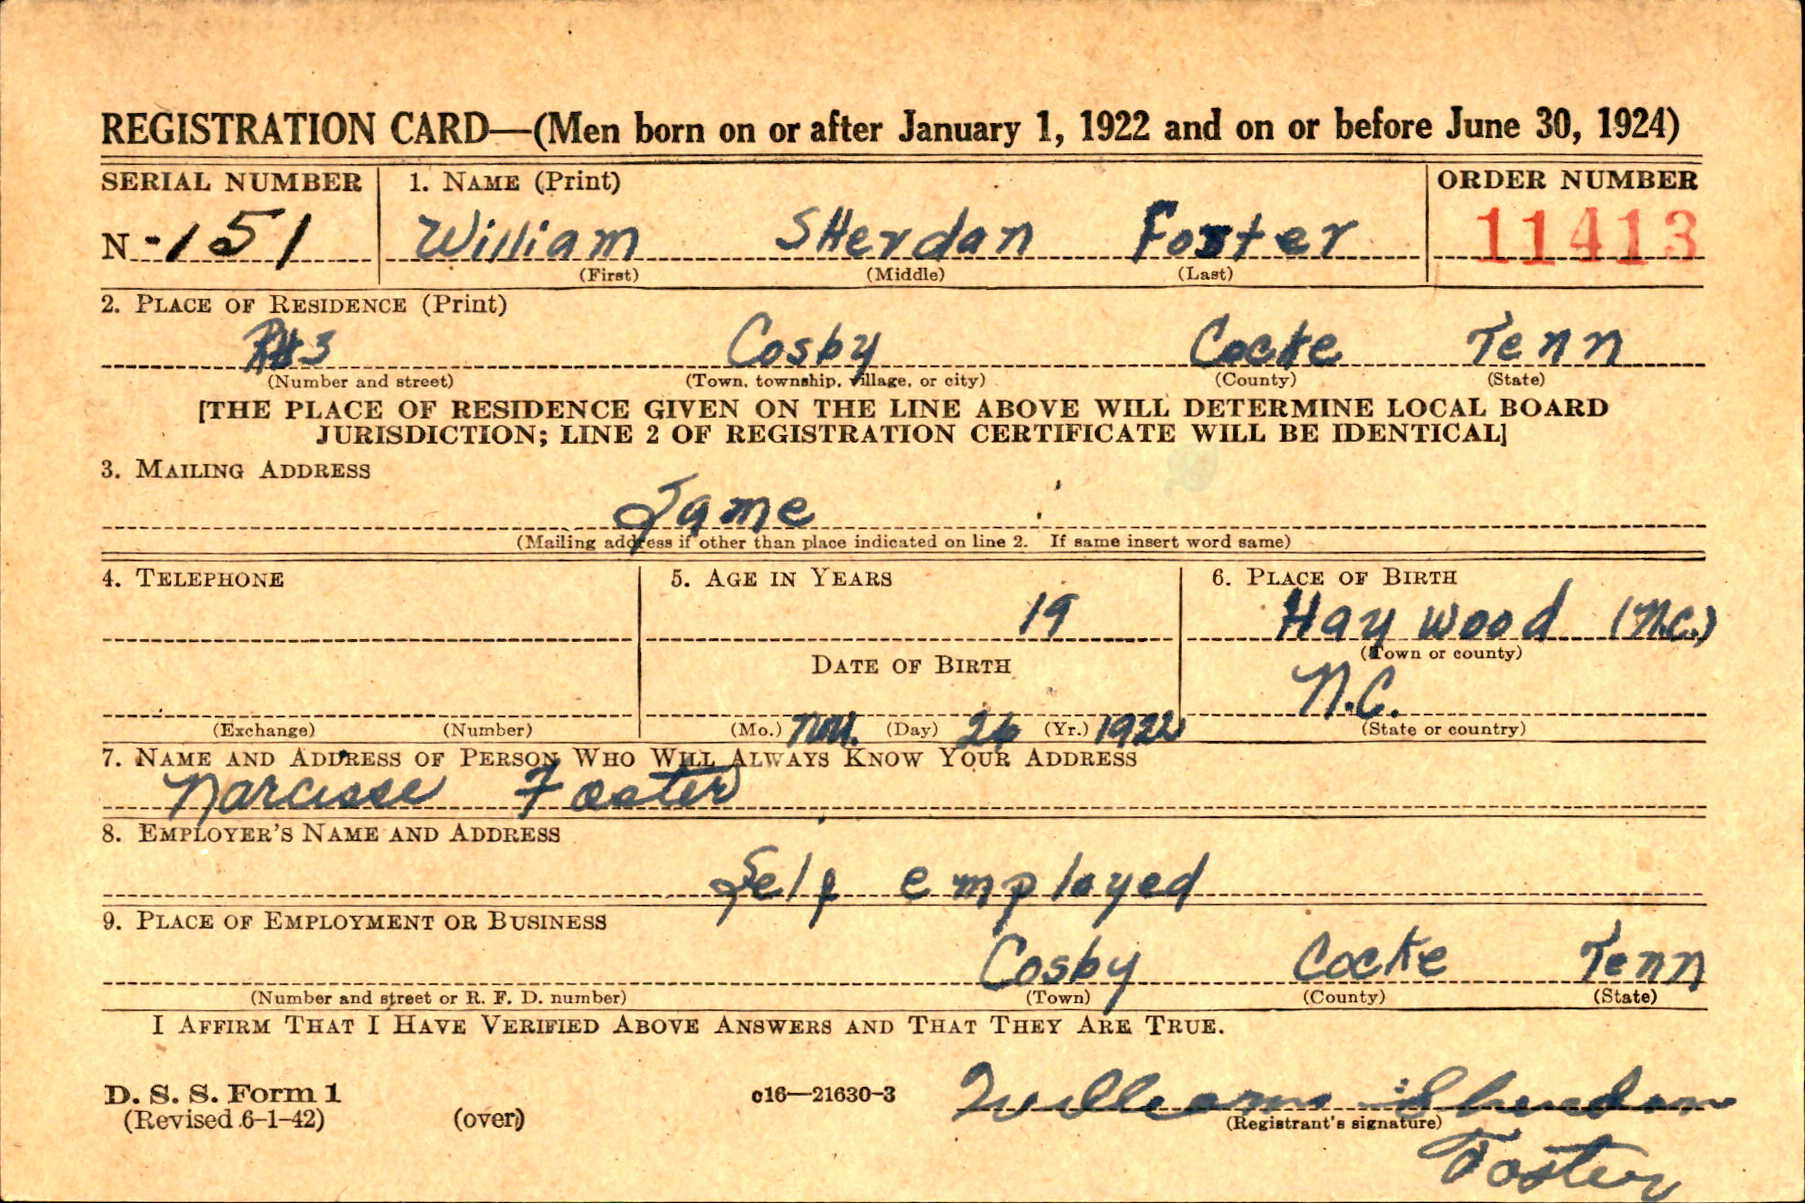 REGISTRATION CARD—(Men born on or after January 1, 1922 and on or before June 30, 1924)
SERIAL NUMBER 1. NAME (Print) ORDER NUMBER
N-151 William SHerdan Foster 11413
(First) (Middle) (Last)
2. PLACE OF RESIDENCE (Print)
R#3 Cosby Cocke Tenn
(Number and street) (Town, township, village, or city) (County) (State)
[THE PLACE OF RESIDENCE GIVEN ON THE LINE ABOVE WILL DETERMINE LOCAL BOARD
JURISDICTION; LINE 2 OF REGISTRATION CERTIFICATE WILL BE IDENTICAL]
3. MAILING ADDRESS
Same
(Mailing address if other than place indicated on line 2. If same insert word same)
4. TELEPHONE 5. AGE IN YEARS 6. PLACE OF BIRTH
19 Haywood (N.C.)
DATE OF BIRTH (Town or county)
N.C.
(Exchange) (Number) (Mo.) Nov. (Day) 26 (Yr.) 1922 (State or country)
7. NAME AND ADDRESS OF PERSON WHO WILL ALWAYS KNOW YOUR ADDRESS
Narcisse Foster
8. EMPLOYER'S NAME AND ADDRESS
Self employed
9. PLACE OF EMPLOYMENT OR BUSINESS
Cosby Cocke Tenn
(Number and street or R. F. D. number) (Town) (County) (State)
I AFFIRM THAT I HAVE VERIFIED ABOVE ANSWERS AND THAT THEY ARE TRUE.
D. S. S. Form 1 c16—21630-3 William Sherdan
(Revised 6-1-42) (over) (Registrant's signature)
Foster